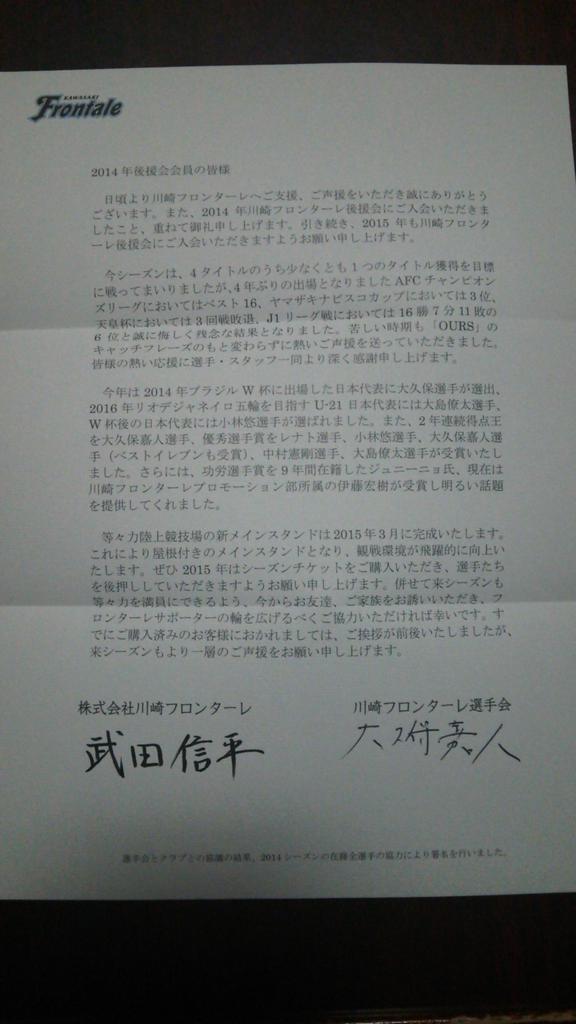 KAWASAKI
Frontale
2014 年後援会会員の皆様
日頃より川崎フロンターレへご支援、ご声援をいただき誠にありがとう
ございます。また、2014 年川崎フロンターレ後援会にご入会いただきま
したこと、重ねて御礼申し上げます。引き続き、2015 年も川崎フロンタ
ーレ後援会にご入会いただきますようお願い申し上げます。
今シーズンは、4 タイトルのうち少なくとも 1 つのタイトル獲得を目標
に戦ってまいりましたが、4 年ぶりの出場となりました AFC チャンピオン
ズリーグにおいてはベスト 16、ヤマザキナビスコカップにおいては 3 位、
天皇杯においては 3 回戦敗退、J1 リーグ戦においては 16 勝 7 分 11 敗の
6 位と誠に悔しく残念な結果となりました。苦しい時期も「OURS」の
キャッチフレーズのもと変わらずに熱いご声援を送っていただきました。
皆様の熱い応援に選手・スタッフ一同より深く感謝申し上げます。
今年は 2014 年ブラジル W 杯に出場した日本代表に大久保選手が選出、
2016 年リオデジャネイロ五輪を目指す U-21 日本代表には大島僚太選手、
W 杯後の日本代表には小林悠選手が選ばれました。また、2 年連続得点王
を大久保嘉人選手、優秀選手賞をレナト選手、小林悠選手、大久保嘉人選
手（ベストイレブンも受賞）、中村憲剛選手、大島僚太選手が受賞いたし
ました。さらには、功労選手賞を 9 年間在籍したジュニーニョ氏、現在は
川崎フロンターレプロモーション部所属の伊藤宏樹が受賞し明るい話題
を提供してくれました。
等々力陸上競技場の新メインスタンドは 2015 年 3 月に完成いたします。
これにより屋根付きのメインスタンドとなり、観戦環境が飛躍的に向上い
たします。ぜひ 2015 年はシーズンチケットをご購入いただき、選手たち
を後押ししていただきますようお願い申し上げます。併せて来シーズンも
等々力を満員にできるよう、今からお友達、ご家族をお誘いいただき、フ
ロンターレサポーターの輪を広げるべくご協力いただければ幸いです。す
でにご購入済みのお客様におかれましては、ご挨拶が前後いたしましたが、
来シーズンもより一層のご声援をお願い申し上げます。
株式会社川崎フロンターレ
川崎フロンターレ選手会
武田信平
大久保嘉人
選手会とクラブとの協議の結果、2014 シーズンの在籍全選手の協力により署名を行いました。